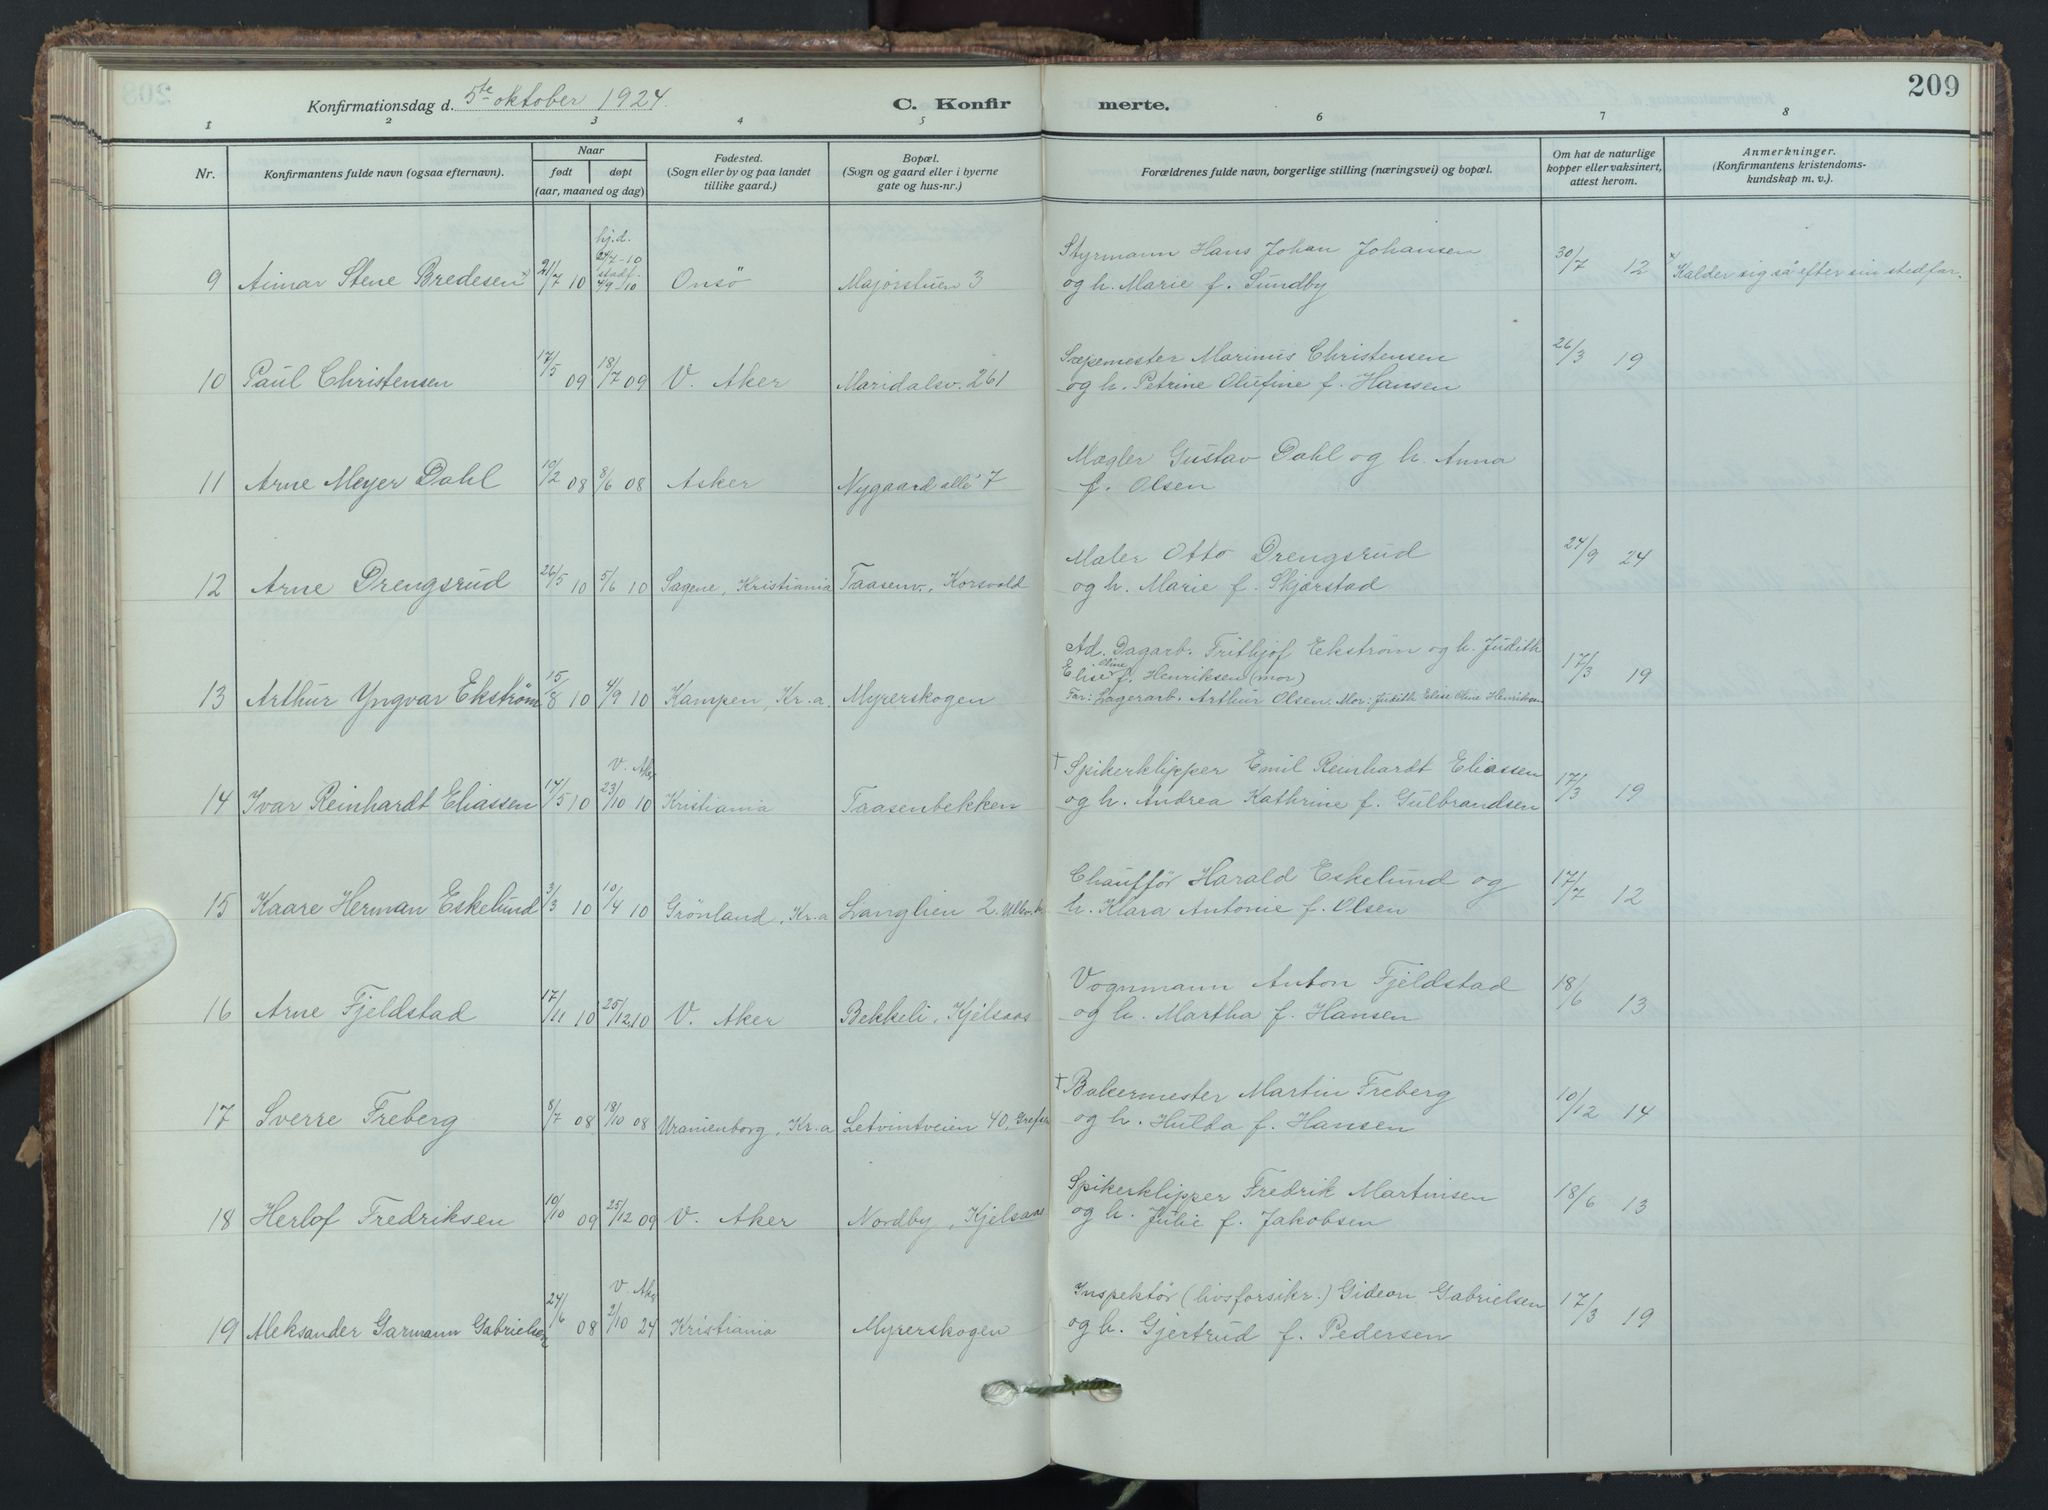 209
Konfirmationsdag d. 5te oktober 1924.
C. Konfirmerte.
1 2 3 4 5 6 7 8
Nr.
Konfirmantens fulde navn (ogsaa efternavn).
Naar
født døpt
(aar, maaned og dag)
Fødested.
(Sogn eller by og paa landet
tillike gaard.)
Bopæl.
(Sogn og gaard eller i byerne
gate og hus-nr.)
Forældrenes fulde navn, borgerlige stilling (næringsvei) og bopæl.
Om hat de naturlige
kopper eller vaksinert,
attest herom.
Anmerkninger.
(Konfirmantens kristendoms-
kundskap m. v.).
hj.d.
24/7-10
stadf.
4/9-10
Styrmann Hans Johan Johansen
9 Aimar Stene Bredesen x) 21/7 10 Onsö Majorstuen 3 og h. Marie f. Sundby 30/7 12 x) Kalder sig så efter sin stedfar.
Sæpemester Marinus Christensen
10 Paul Christensen 17/5 09 18/7 09 V. Aker Maridalsv. 261 og h. Petrine Olufine f. Hansen 26/3 19
Mægler Gustav Dahl og h. Anna
11 Arne Meyer Dahl 10/2 08 8/6 08 Asker Nygaard allé 7 f. Olsen
Maler Otto Drengsrud
12 Arne Drengsrud 26/5 10 5/6 10 Sagene, Kristiania Taasenv., Korsvold og h. Marie f. Skjørstad 24/9 24
Ad. Dagarb. Frithjof Ekstrøm og h. Judith
Elise Oline f. Henriksen (mor)
13 Arthur Yngvar Ekstrøm 15/8 10 4/9 10 Kampen, Kr.a. Myrerskogen Far: Lagerarb. Arthur Olsen. Mor: Judith Elise Oline Henriksen 17/3 19
V. Aker
† Spikerklipper Emil Reinhardt Eliassen
14 Ivar Reinhardt Eliassen 14/5 10 23/10 10 Kristiania Taasenbekken og h. Andrea Kathrine f. Gulbrandsen 17/3 19
Chaufför Harald Eskelund og
15 Kaare Herman Eskelund 3/3 10 10/4 10 Grönland, Kr.a Langlien 2. h. Klara Antonie f. Olsen 17/7 12
Vognmann Anton Fjeldstad
16 Arne Fjeldstad 17/11 10 25/12 10 V. Aker Bekkeli, Kjelsaas og h. Martha f. Hansen 18/6 13
† Bakermester Martin Freberg
17 Sverre Freberg 8/7 08 18/10 08 Uranienborg, Kr.a Letvintveien 40, Grefsen og h. Hulda f. Hansen 10/12 14
Spikerklipper Fredrik Martinsen
18 Herlof Fredriksen 10/10 09 25/12 09 V. Aker Nordby, Kjelsaas og h. Julie f. Jakobsen 18/6 13
V. Aker
Inspektør (livsforsikr.) Gideon Gabrielsen
19 Aleksander Garmann Gabrielsen 24/6 08 2/10 24 Kristiania Myrerskogen og h. Gjertrud f. Pedersen 17/3 19